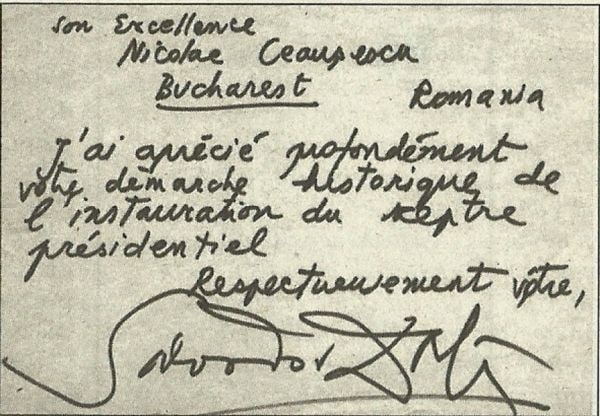 son Excellence
Nicolae Ceaupescu
Bucharest Romania
J'ai aprécié profondément
vôtre démarche historique de
l'instauration du sceptre
présidentiel
Respectueuement vôtre,
Salvador Dalí